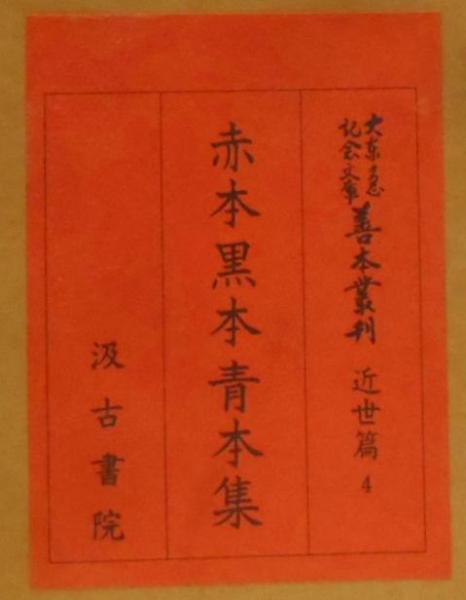 大东急
记念文庫
善本叢刊 近世篇 4
赤本黒本青本集
汲古書院